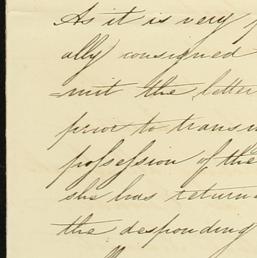 As it is very p
ally) consigned
=mit the letter
prior to transm
possession of the
she has return
the desponding